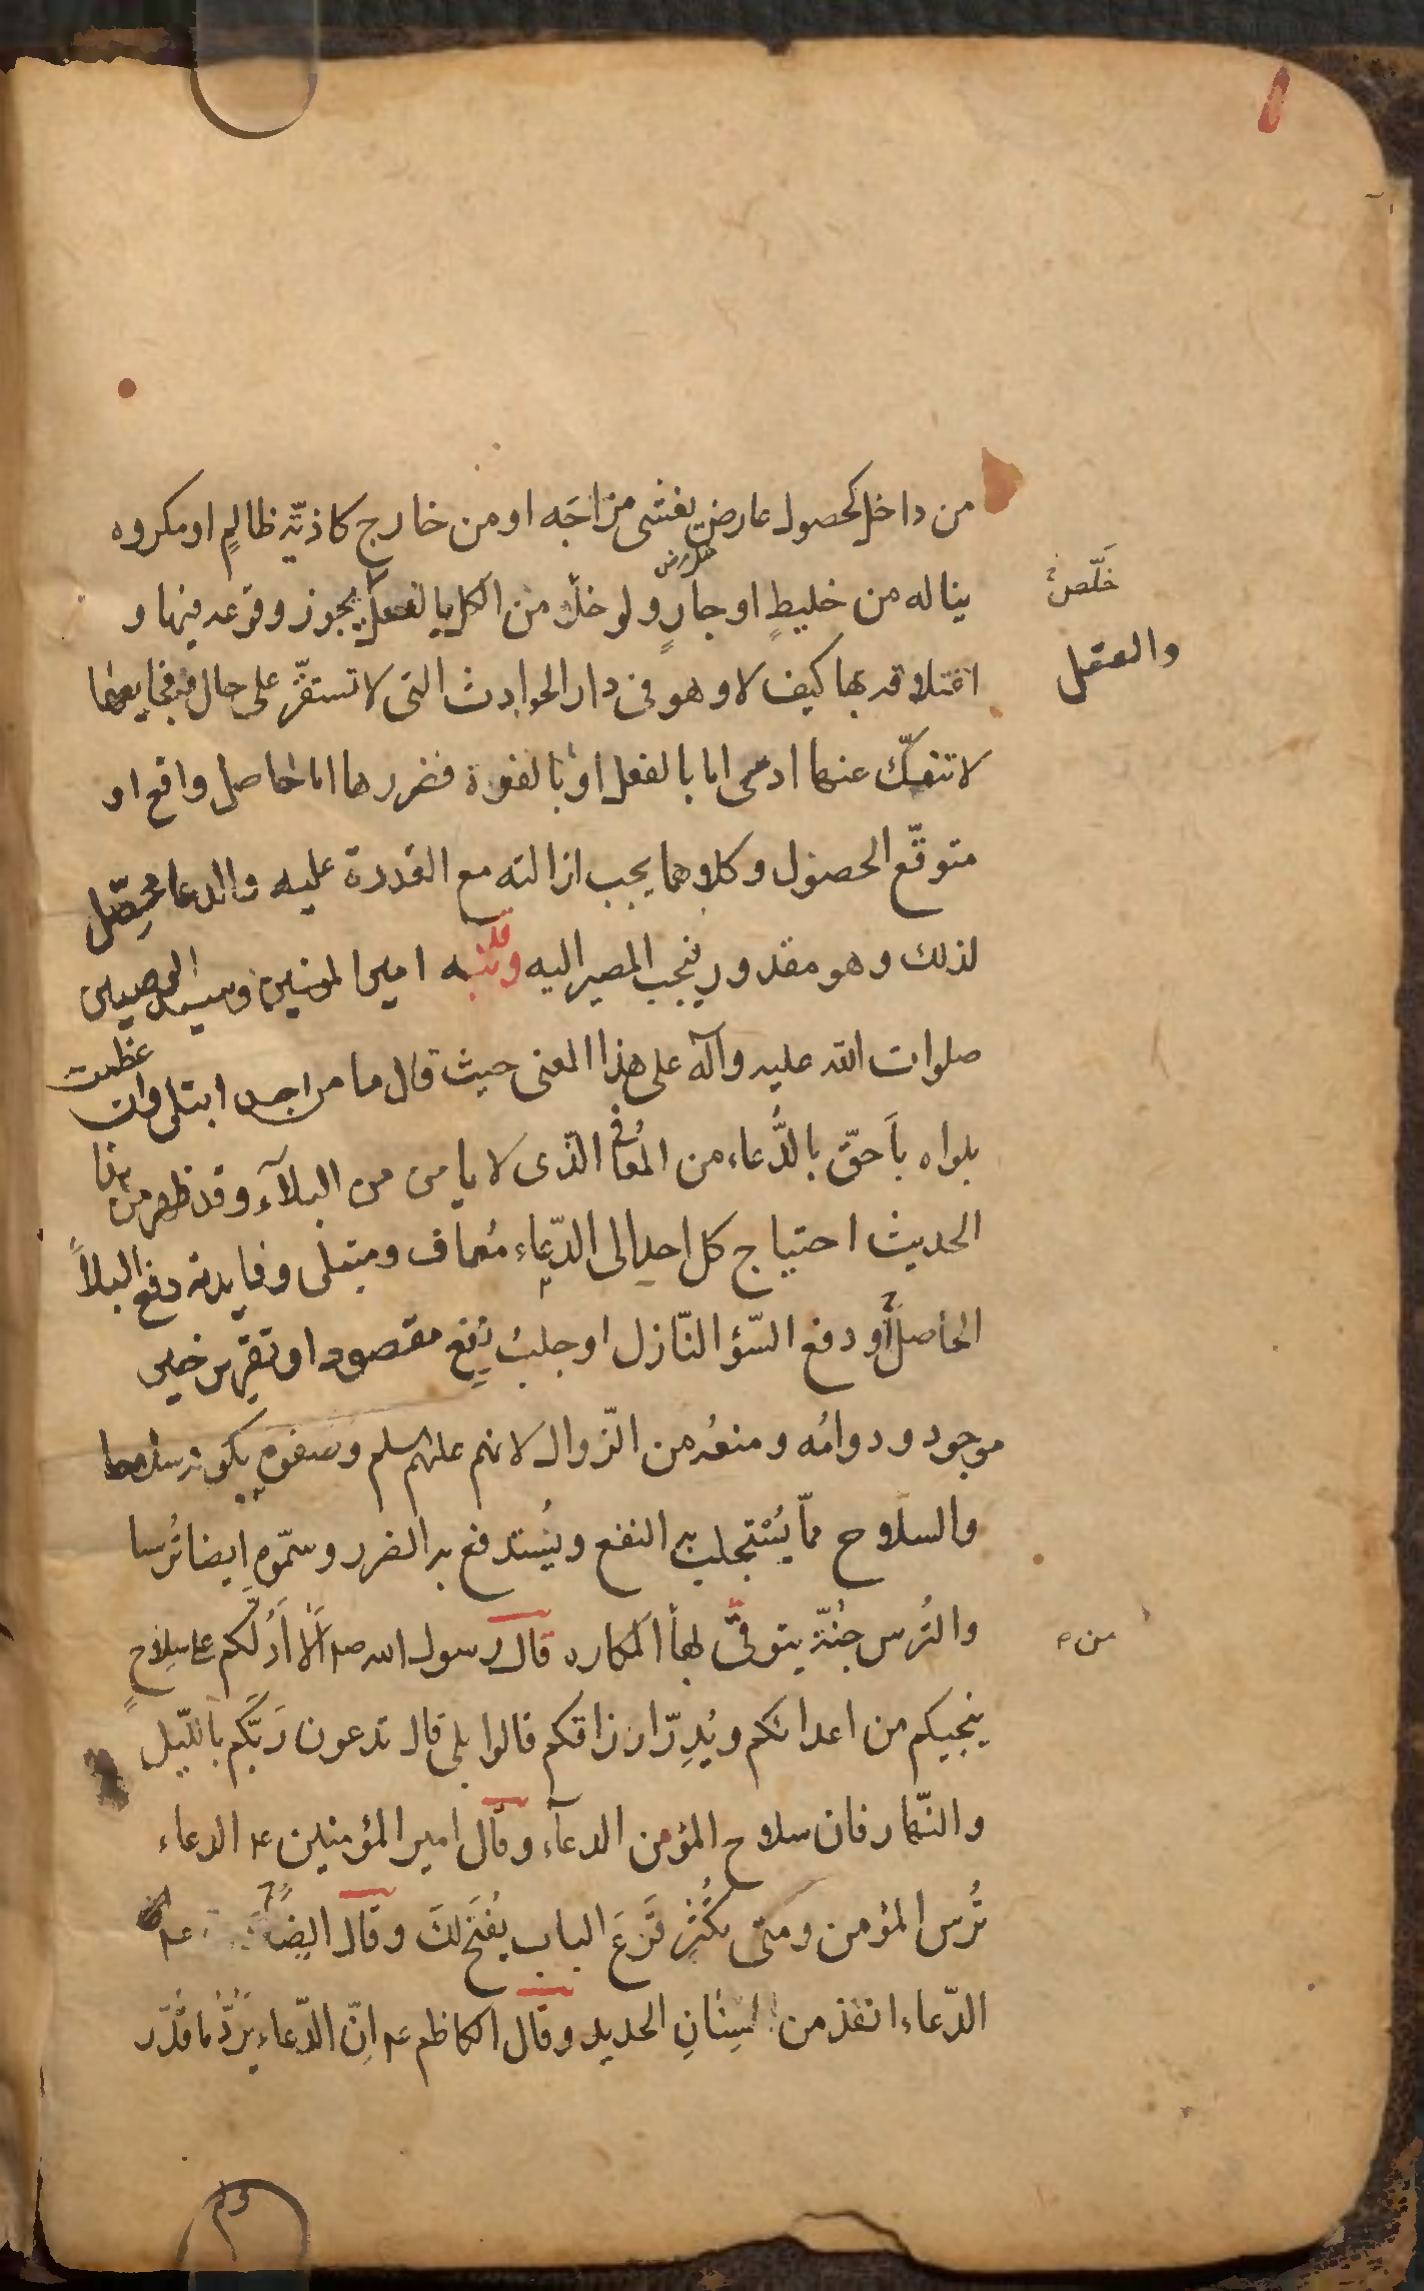 من داخل كحصول عارض يغشى مزاجه او من خارج كاذيّة ظالمٍ او مكروه
يناله من خليطٍ او جارٍ ولو خلا من الكل بالفعل يجوز وقوعه فيها و
خلّص
والعقل
اعتلاقه بها كيف لا وهو فى دار الحوادث التى لا تستقرّ على حال
لا تنفكّ عنهما ادمى اما بالفعل او بالقوة فضررهما اما حاصل واقع او
متوقّع الحصول وكلاهما يجب ازالته مع القدرة عليه والدعا محصّل
لذلك وهو مقدور فيجب المصير اليه وقد نبّه امير المومنين وسيد الوصيين
صلوات الله عليه وآله على هذا المعنى حيث قال ما من احد ابتلى وان عظمت
بلواه باَحقّ بالدُّعاء من المُعافى الذّى لا يامن من البلآء وقد ظهر من هذا
الحديث احتياج كل احد الى الدّعاء مُعاف ومبتلى وفايدته دفع البلاً
الحاصل أو دفع السّؤ النّازل او جلب نفع مقصود او تقرير خير
موجود ودوامُه ومنعُه من الزّوال لانهم عليهم السلم وصفوه بكونه سلاحا
والسلاح ممّا يُسْتجلب به النفع ويُستدفع به الضرر وسمّوه ايضا تُرسا
والتُرس جُنّة يتوقّى بها المكاره قال رسول الله صم اَلا اَدُلّكم على سِلاحٍ
من
ينجيكم من اعدائكم ويُدِرّ ارزاقكم قالوا بلى قال تدعون رَبّكم بالليّل
والنّهار فان سلاح المؤمن الدعآء وقال امير المؤمنين عم الدعاء
تُرس المؤمن ومتى تُكْثِر قَرْعَ الباب يُفتَح لكَ وقال ايضاً عم
الدّعاء انفذ من السِنانِ الحديد وقال الكاظم عم اِنّ الدّعاء يَرُدُّ ما قُدّر